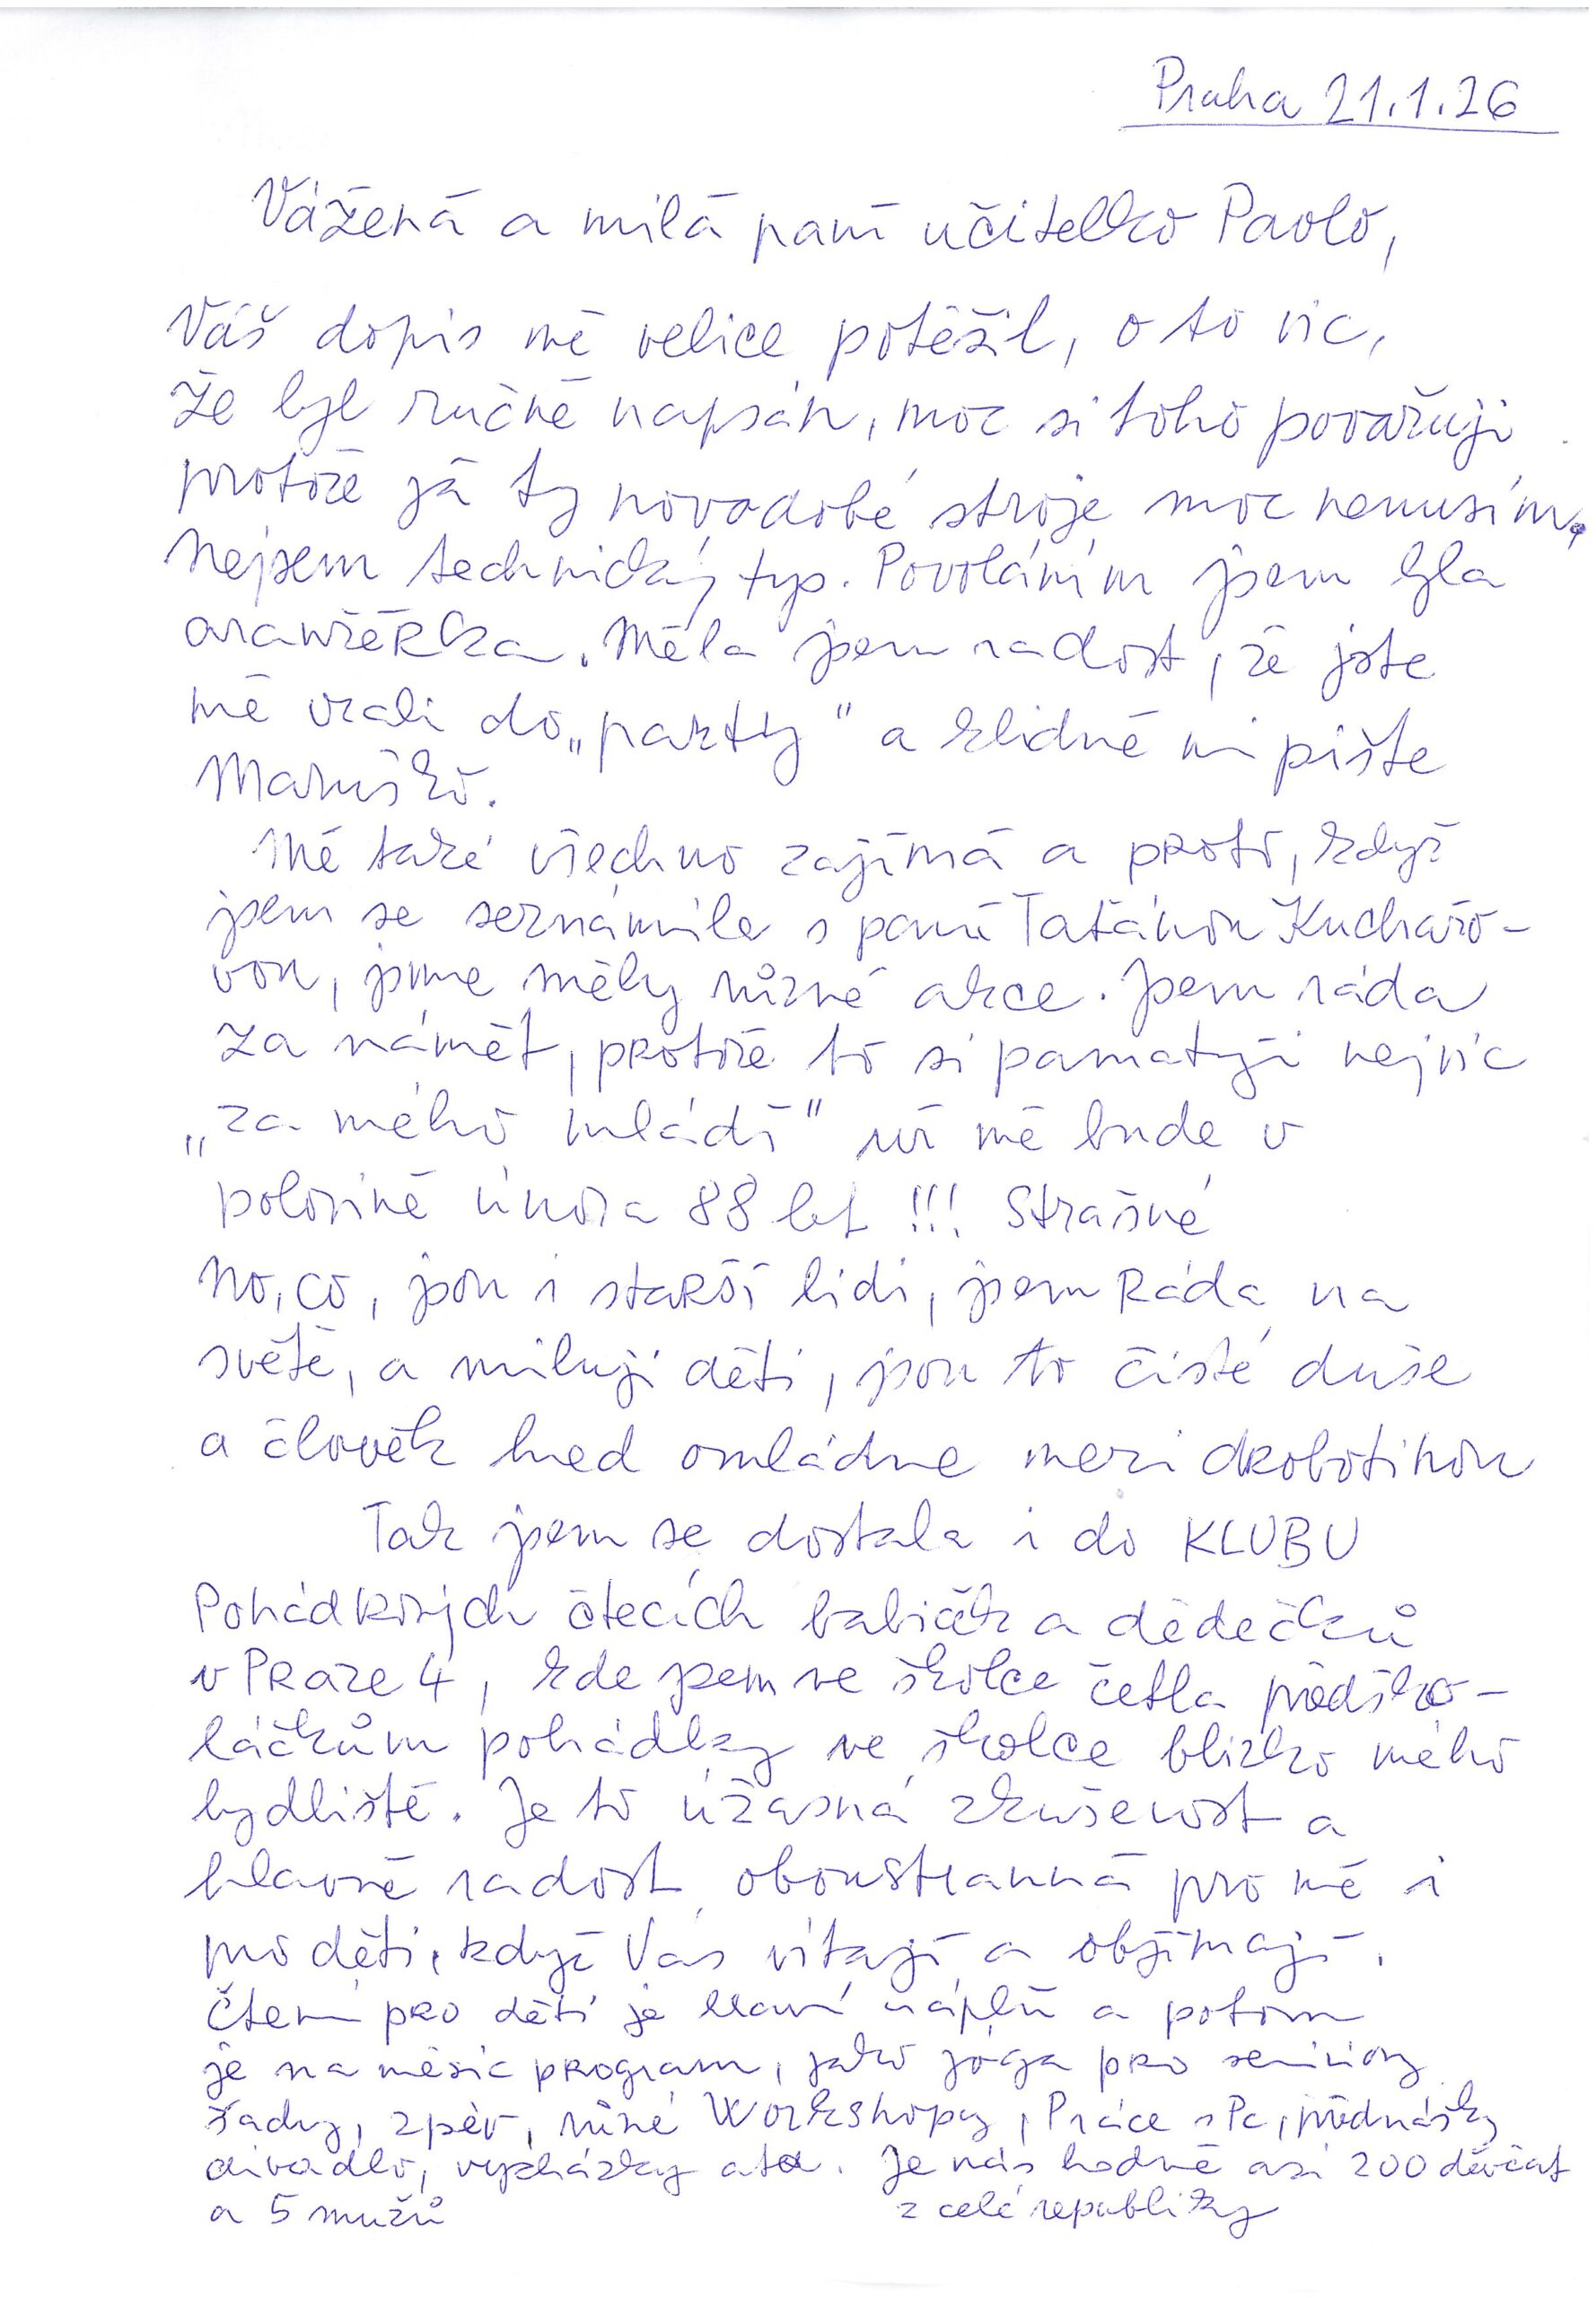 Praha 21.1.26
Vážená a milá paní učitelko Paolo,
Váš dopis mě velice potěšil, o to víc,
že byl ručně napsán, moc si toho považuji
protože já ty novodobé stroje moc nemusím,
Nejsem technický typ. Povoláním jsem byla
aranžérka. Měla jsem radost, že jste
mě vzali do „party" a klidně mi pište
Maruško.
Mě také všechno zajímá a proto, když
jsem se seznámila s paní Taťánou Kuchařo-
vou, jsme měly různé akce. Jsem ráda
za námět, protože to si pamatuji nejvíc
„za mého mládí" už mě bude v
polovině února 88 let !!! Strašné
No, co, jsou i starší lidi, jsem Ráda na
světě, a miluji děti, jsou to čisté duše
a člověk hned omládne mezi drobotinou
Tak jsem se dostala i do KLUBU
Pohádkových čtecích babiček a dědečků
v Praze 4, kde jsem ve školce četla předško-
láčkům pohádky ve školce blízko mého
bydliště. Je to úžasná zkušenost a
hlavně radost oboustranná pro mě i
pro děti, když Vás vítají a objímají.
Čtení pro děti je hlavní náplň a potom
je na měsíc program, jako jóga pro seniory
zpěv, různé Workshopy, Práce s Pc, přednášky
divadlo, vycházky atd. Je nás hodně asi 200 děvčat
a 5 mužů z celé republiky